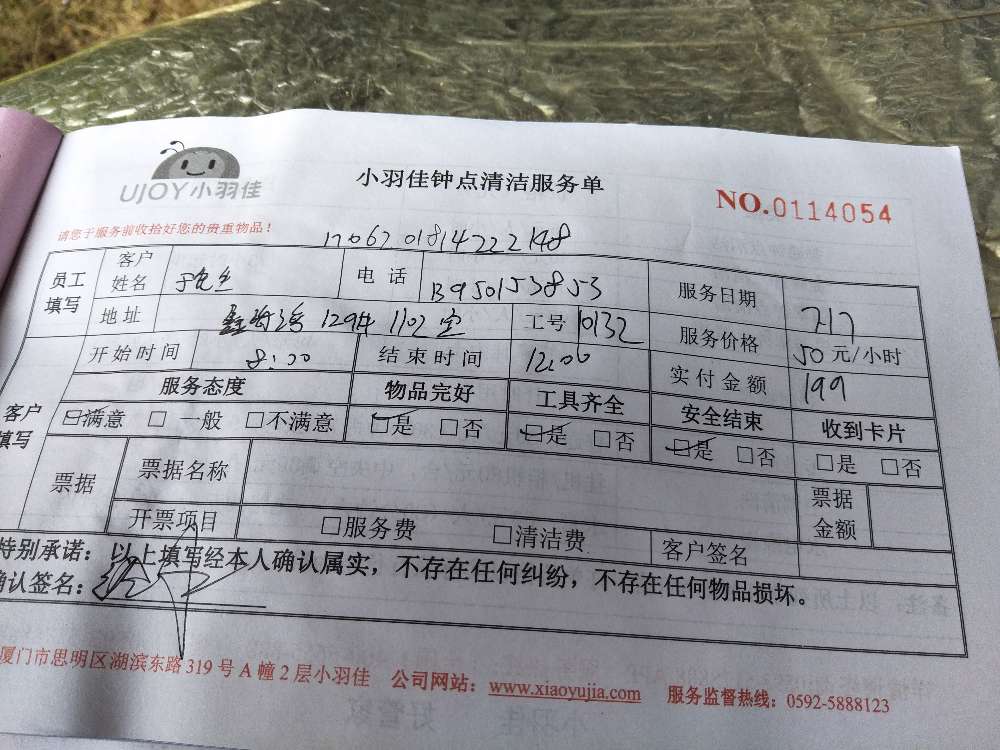 UJOY小羽佳
小羽佳钟点清洁服务单
NO.0114054
请您于服务前收拾好您的贵重物品!
员工填写 客户姓名 电话 13950153853 服务日期 7.17
地址 129# 1102室 工号 10132 服务价格 50元/小时
开始时间 8:00 结束时间 12:00 实付金额 199
客户填写 服务态度 物品完好 工具齐全 安全结束 收到卡片
☑满意 □一般 □不满意 ☑是 □否 ☑是 □否 ☑是 □否 □是 □否
票据 票据名称 票据金额
开票项目 □服务费 □清洁费 客户签名
特别承诺：以上填写经本人确认属实，不存在任何纠纷，不存在任何物品损坏。
确认签名：
厦门市思明区湖滨东路319号A幢2层小羽佳 公司网站：www.xiaoyujia.com 服务监督热线：0592-5888123